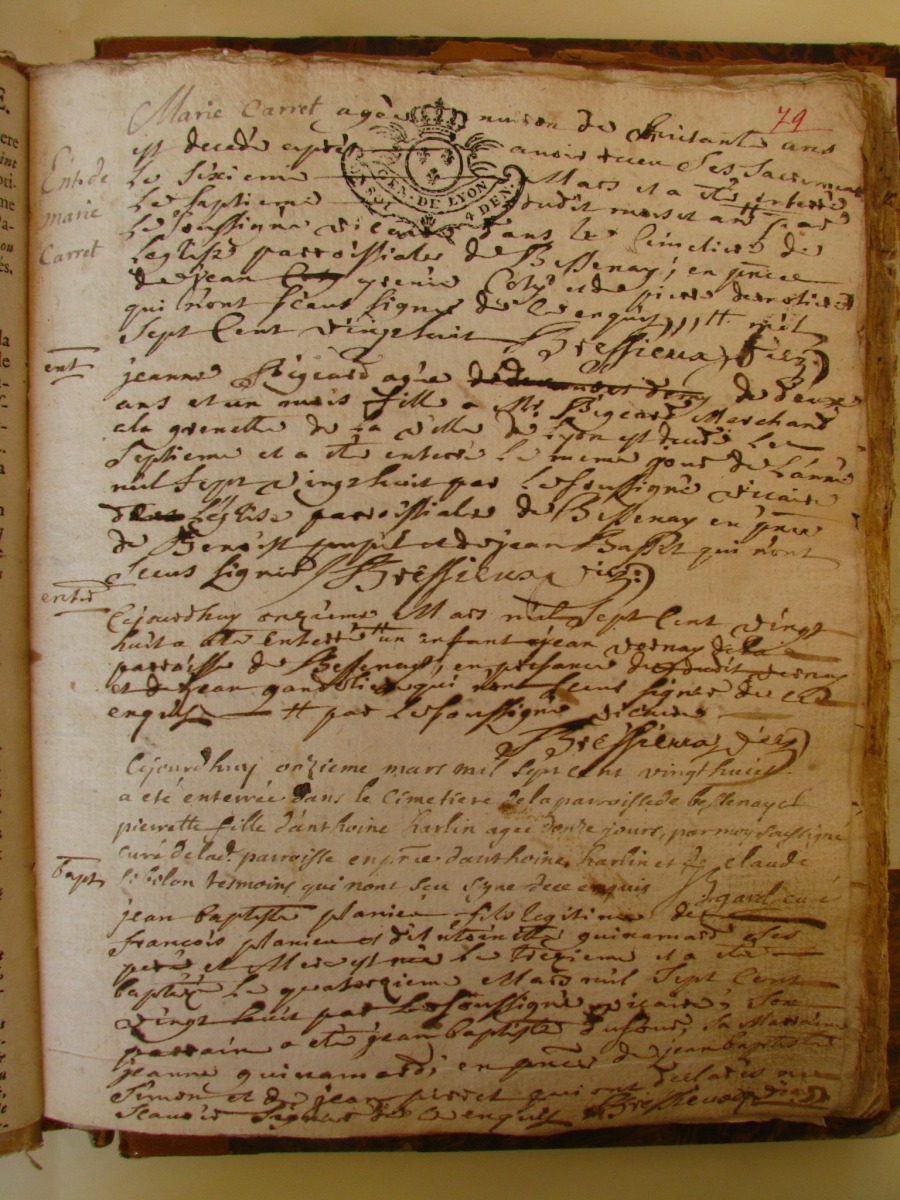 79
Marie Carret agée environ de huitante ans
est decedé apres avoir receu ses sacrements
le sixieme Mars et a eté enterré
le septieme dudit mois et an par
le soussigné vicaire dans le cimetiere de
l'eglise parroissiale de Bessenay, en pnce
de jean grenié et de piere
qui n'ont sceut signer de ce enquis mil
sept cent vingt huit Bressieux vic
GEN. DE LYON 4 DEN.
Ent. de
marie
Carret
ent
jeanne Bigeard agée de deux
ans et un mois fille a Sr. Bigeard Marchand
a la grenette de la ville de Lyon est decedé le
septieme et a eté enterré le meme jour de l'année
mil sept vingt huit par le soussigné vicaire
de l'eglise parroissiale de Bessenay en pnce
de Benoist et de jean Basset qui n'ont
sceus signer Bressieux vic.
enter
Cejourdhuy onzieme Mars mil sept cent vingt
huit a eté enterré un enfant a jean vernay de la
parroisse de Bessenay, en presance dudit vernay
et de jean qui n'ont sceus signer de ce
enquis par le soussigné vicaire
Bressieux vic
Cejourdhuy onzieme mars mil sept cent vingt huict
a eté enterrée dans le cimetiere de la parroisse de bessenay
pierrette fille d'anthoine Karlin agee donze jours, par moy soussigné
curé de lad. parroisse en pnce d'anthoine Karlin et de claude
tesmoins qui nont sçu syne de ce enquis
curé
bapt
jean baptiste planieu fils legitime de
françois planieu et d'antoinette guinamard ses
pere et Mere est né le treizieme et a eté
baptizé le quatorzieme Mars mil sept cent
vingt huit par le soussigné vicaire, son
parrain a eté jean baptiste dufour, sa Marraine
jeanne guinamard, en pnce de jean baptiste
Simon et de jean perret qui ont declarés ne
scavoir signer de ce enquis Bressieux vic.